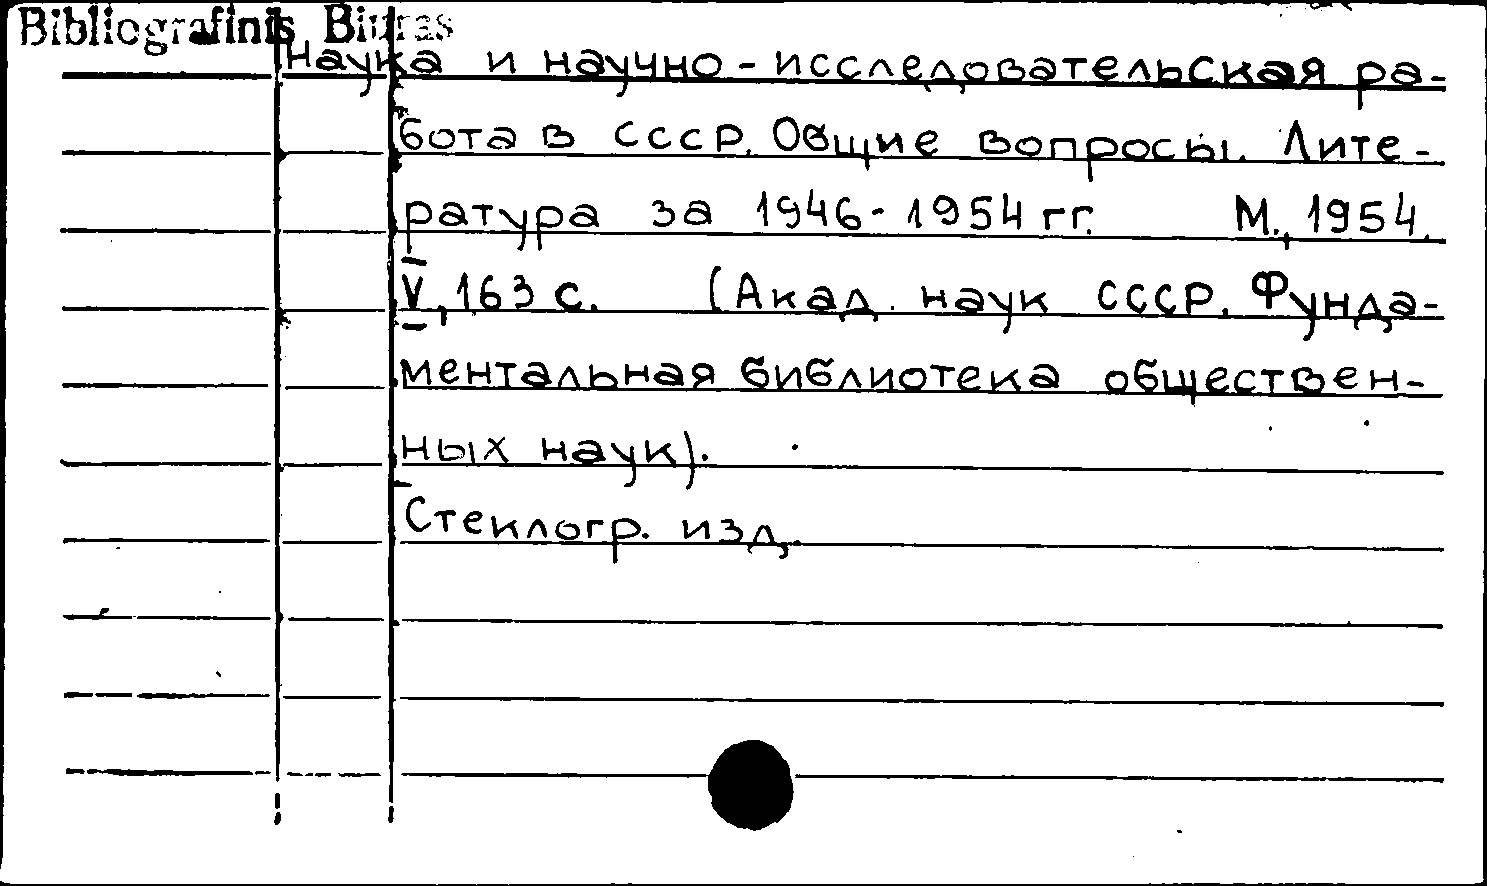 Bibliografinis Biuras
Наука и научно-исследовательская ра-
бота в СССР. Общие вопросы. Лите-
ратура за 1946-1954 гг. М., 1954.
V, 163 с. (Акад. наук СССР. Фунда-
ментальная библиотека обществен-
ных наук).
Стеклогр. изд.